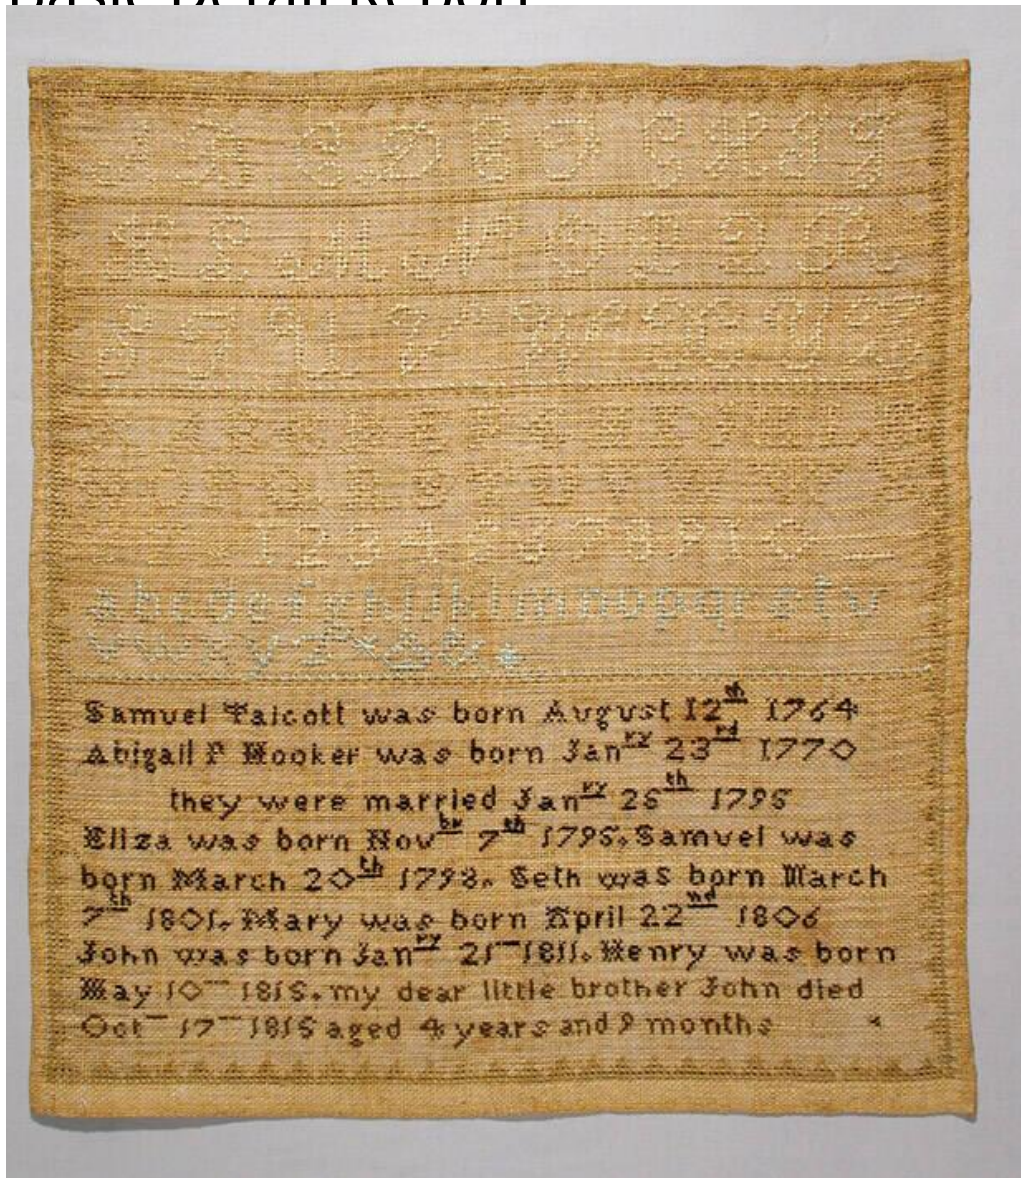 Basic Detail Report
12345678910
abcdefghijklmnopqrstu
vwxyz&
Samuel Talcott was born August 12th 1764
Abigail P Hooker was born Janry 23rd 1770
they were married Janry 25th 1795
Eliza was born Novbr 7th 1795. Samuel was
born March 20th 1798. Seth was born March
7th 1801. Mary was born April 22nd 1806
John was born Janry 21 1811. Henry was born
May 10 1815. my dear little brother John died
Oct 17 1815 aged 4 years and 9 months